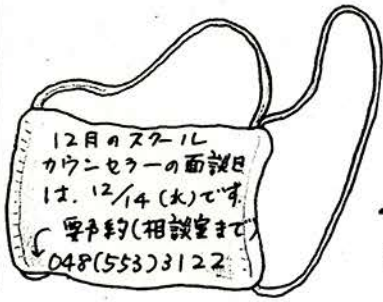 12月のスクール
カウンセラーの面談日
は、12/14(水)です。
要予約(相談室まで)
048(553)3122